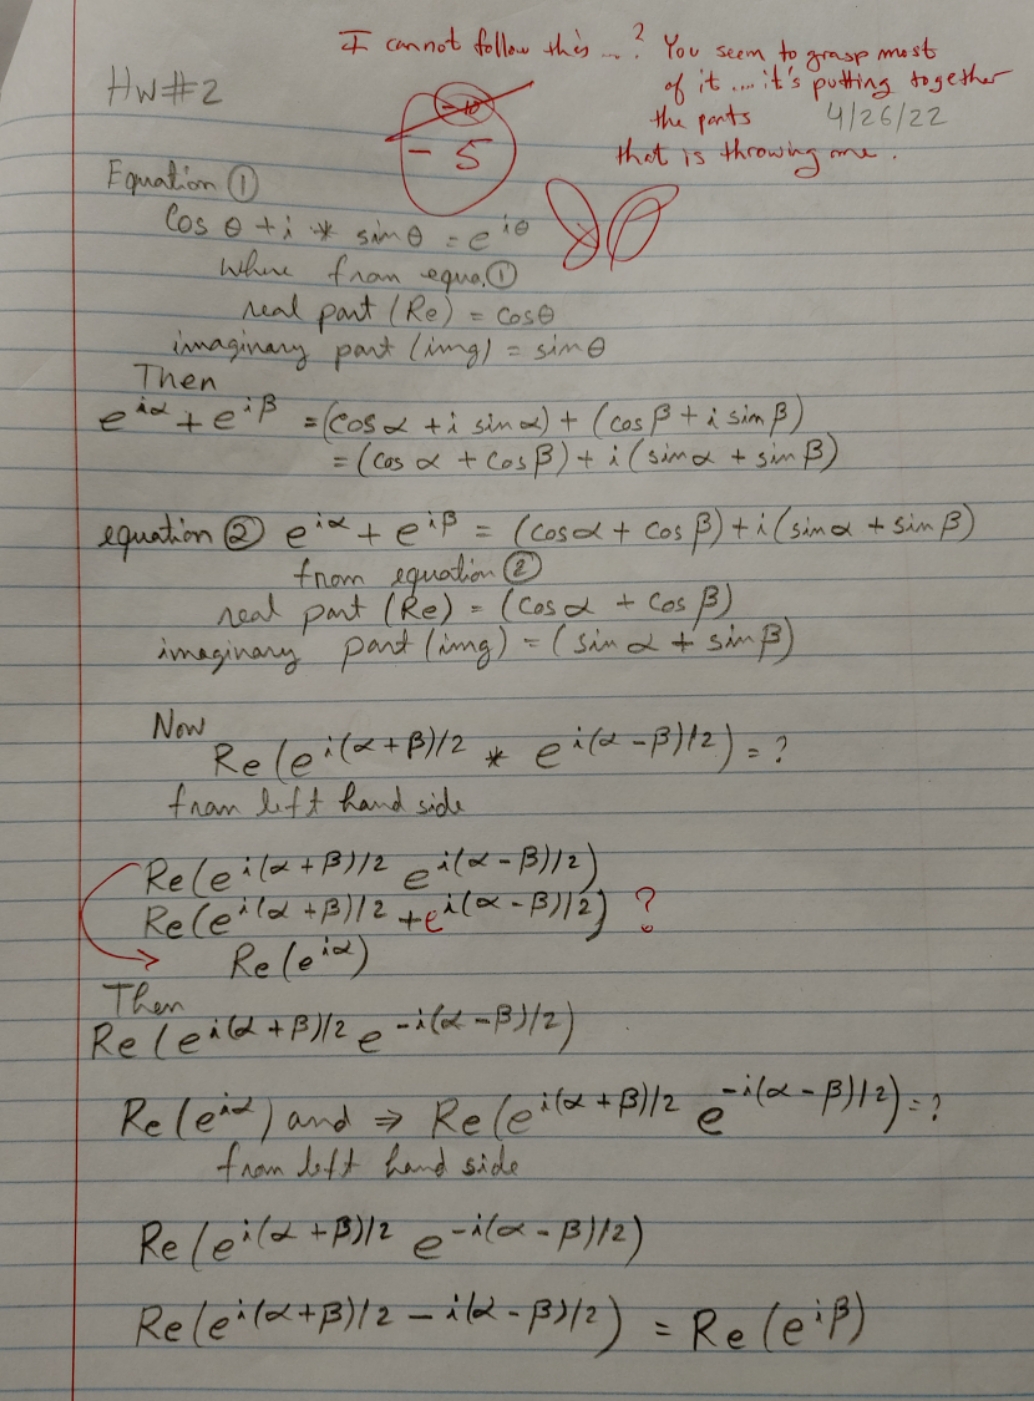 I cannot follow this ...? You seem to grasp most
of it .... it's putting together
the parts
that is throwing me.
HW#2
4/26/22
-10
-5
Equation ①
cos θ + i * sin θ = e^{iθ}
Where from equa.①
real part (Re) = cosθ
imaginary part (img) = sinθ
Then
e^{iα} + e^{iβ} = (cosα + i sinα) + (cosβ + i sinβ)
= (cosα + cosβ) + i(sinα + sinβ)
equation ② e^{iα} + e^{iβ} = (cosα + cosβ) + i(sinα + sinβ)
from equation ②
real part (Re) = (cosα + cosβ)
imaginary part (img) = (sinα + sinβ)
Now
Re(e^{i(α+β)/2} * e^{i(α-β)/2}) = ?
from left hand side
Re(e^{i(α+β)/2} e^{i(α-β)/2})
Re(e^{i(α+β)/2} + e^{i(α-β)/2}) ?
Re(e^{iα})
Then
Re(e^{i(α+β)/2} e^{-i(α-β)/2})
Re(e^{iα}) and ⇒ Re(e^{i(α+β)/2} e^{-i(α-β)/2}) = ?
from left hand side
Re(e^{i(α+β)/2} e^{-i(α-β)/2})
Re(e^{i(α+β)/2 - i(α-β)/2}) = Re(e^{iβ})